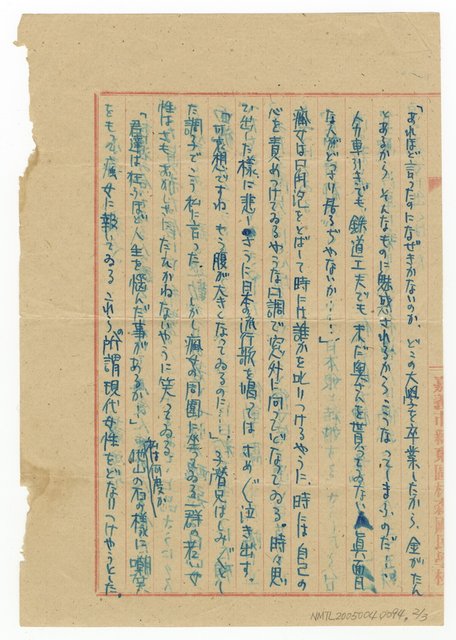 「あれほど言つたのになぜきかないのか、どこの大学を卒業したから、金がたん
とあるから、そんなものに魅惑されるから、こうなつてしまふのだ……
人力車引きでも、鉄道工夫でも、まだ奥さんを貰つてゐない眞面目
な人がどつさり居るぢやないか……」
瘋女は口角泡をとばして時には誰かを叱りつけるやうに、時には自己の
心を責めつけてゐるやうな口調で窓外に向つてどなつてゐる。時々思
ひ出した様に悲しさうに日本の流行歌を唄つては、さめざめ泣き出す。
「可哀想ですね、もう腹が大きくなつてゐるのに……」
た調子でかう私に言つた。しかし瘋女の周圍に坐つてゐる一群の若い女
性はさも、おかしさにたえかねないやうに笑つてゐる。
「君達は狂ふほど人生を悩んだ事があるか!」他山の石の様に嘲笑
私は何度か
をもつて瘋女に報いてゐるこれら所謂現代女性をどなりつけやうとした。
NMTL20050040094, 2/3